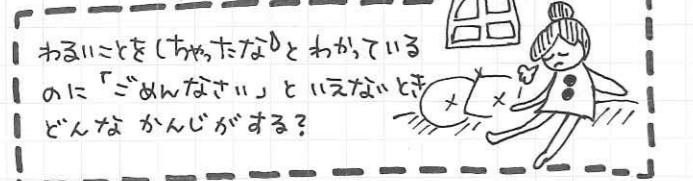 わるいことをしちゃったな、とわかっている
のに「ごめんなさい」といえないとき
どんなかんじがする？